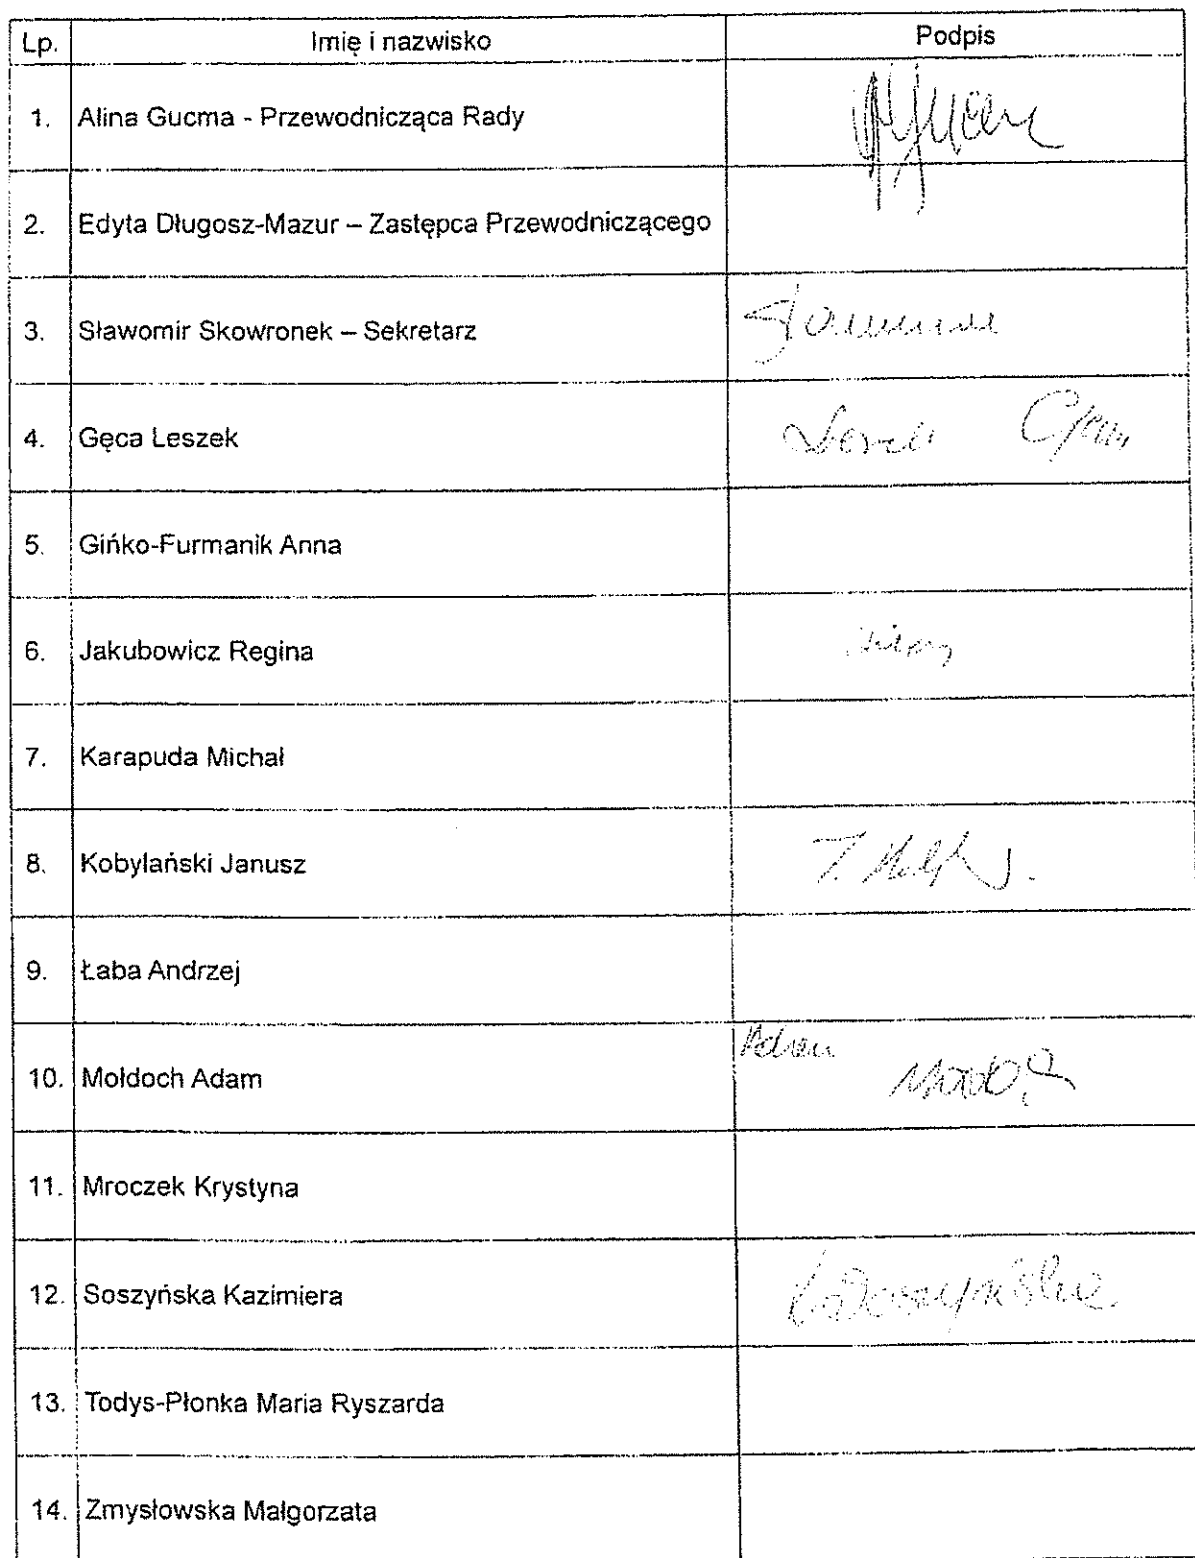 Lp. Imię i nazwisko Podpis
1. Alina Gucma - Przewodnicząca Rady
2. Edyta Długosz-Mazur – Zastępca Przewodniczącego
3. Sławomir Skowronek – Sekretarz
4. Gęca Leszek
5. Gińko-Furmanik Anna
6. Jakubowicz Regina
7. Karapuda Michał
8. Kobylański Janusz
9. Łaba Andrzej
10. Mołdoch Adam
11. Mroczek Krystyna
12. Soszyńska Kazimiera
13. Todys-Płonka Maria Ryszarda
14. Zmysłowska Małgorzata